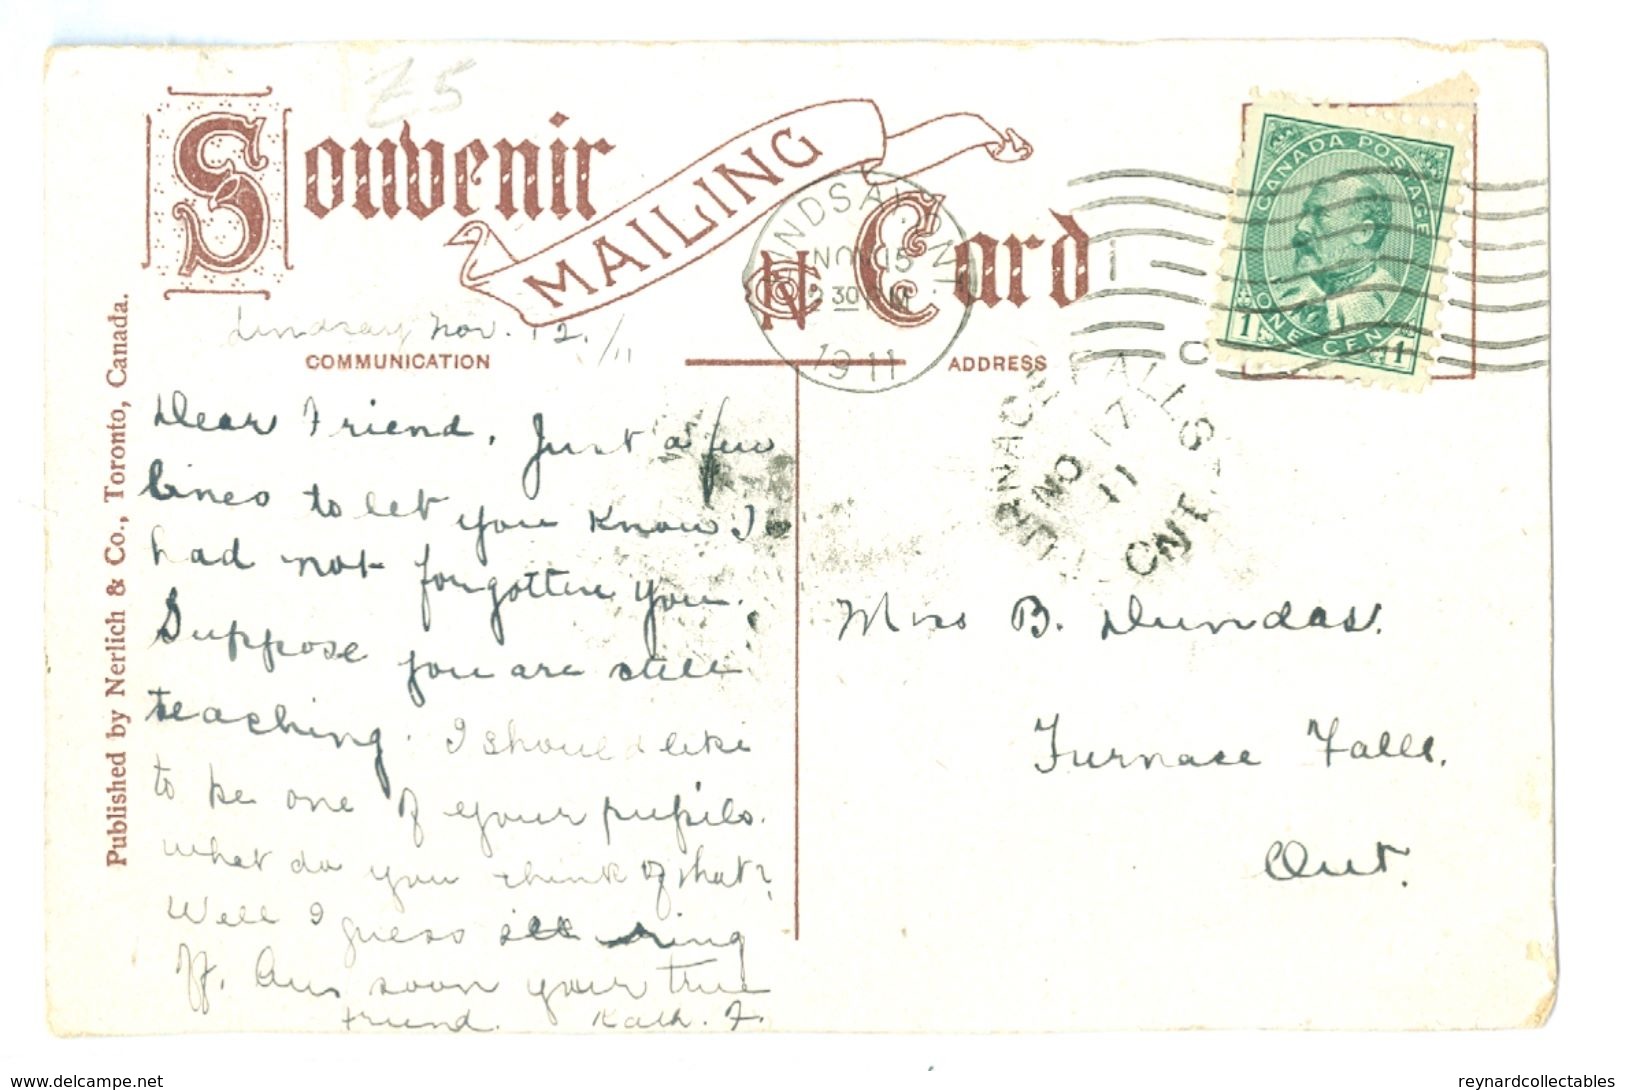 £5
Souvenir
MAILING
Card
Lindsay Nov. 12./11
COMMUNICATION
ADDRESS
LINDSAY ONT
NOV 15
2 30 PM
1911
CANADA POSTAGE
1 ONE CENT 1
FURNACE FALLS
NO 17
11
ONT
Published by Nerlich & Co., Toronto, Canada.
Dear Friend. Just a few
lines to let you know I
had not forgotten you.
Suppose you are still
teaching. I should like
to be one of your pupils.
what do you think of that?
Well I guess ill ring
off. Ans soon your true
Friend. Kath. F.
Miss B. Dundas.
Furnace Falls.
Ont.
delcampe.net
reynardcollectables